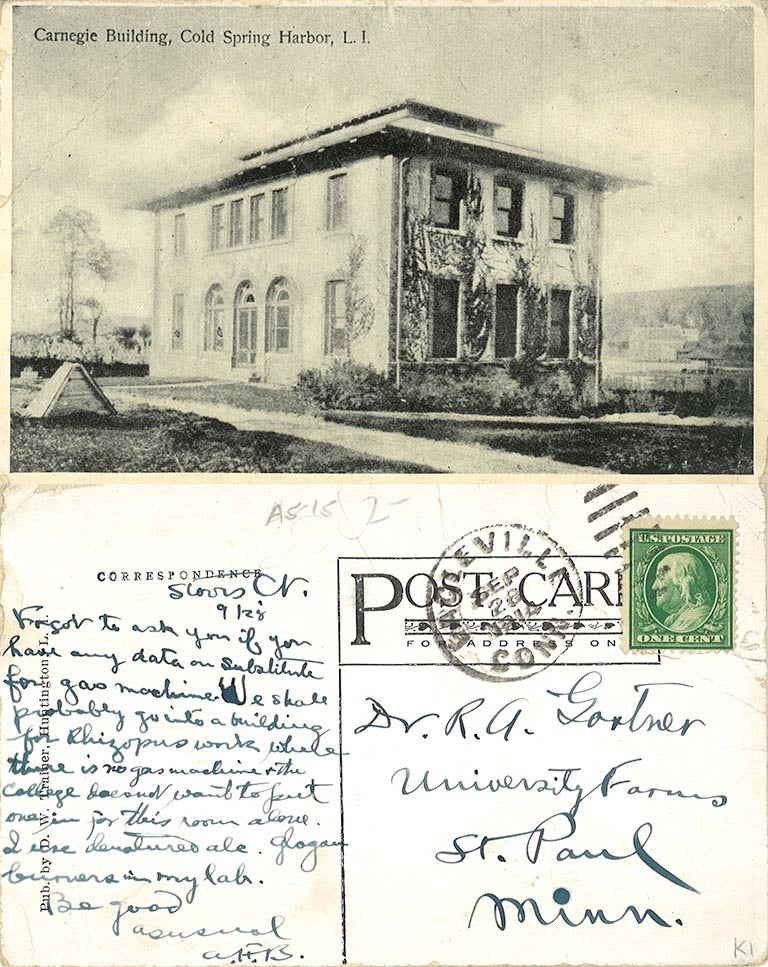 Carnegie Building, Cold Spring Harbor, L. I.
A515 2-
CORRESPONDENCE
Storrs Ct.
9/28
Forgot to ask you if you
have any data on substitute
for gas machine. We shall
probably go into a building
for Rhizopus work where
there is no gas machine & the
College does not want to put
one in for this room alone.
I use denatured alc.
burners in my lab.
Be good
as usual
A.F.B.
Pub. by D. W. Trainer, Huntington, L. I.
POST CARD
FOR ADDRESS ON
EAGLEVILLE
SEP
28
CONN.
U.S. POSTAGE
ONE CENT
Dr. R. A. Gortner
University Farms
St. Paul
Minn.
K1